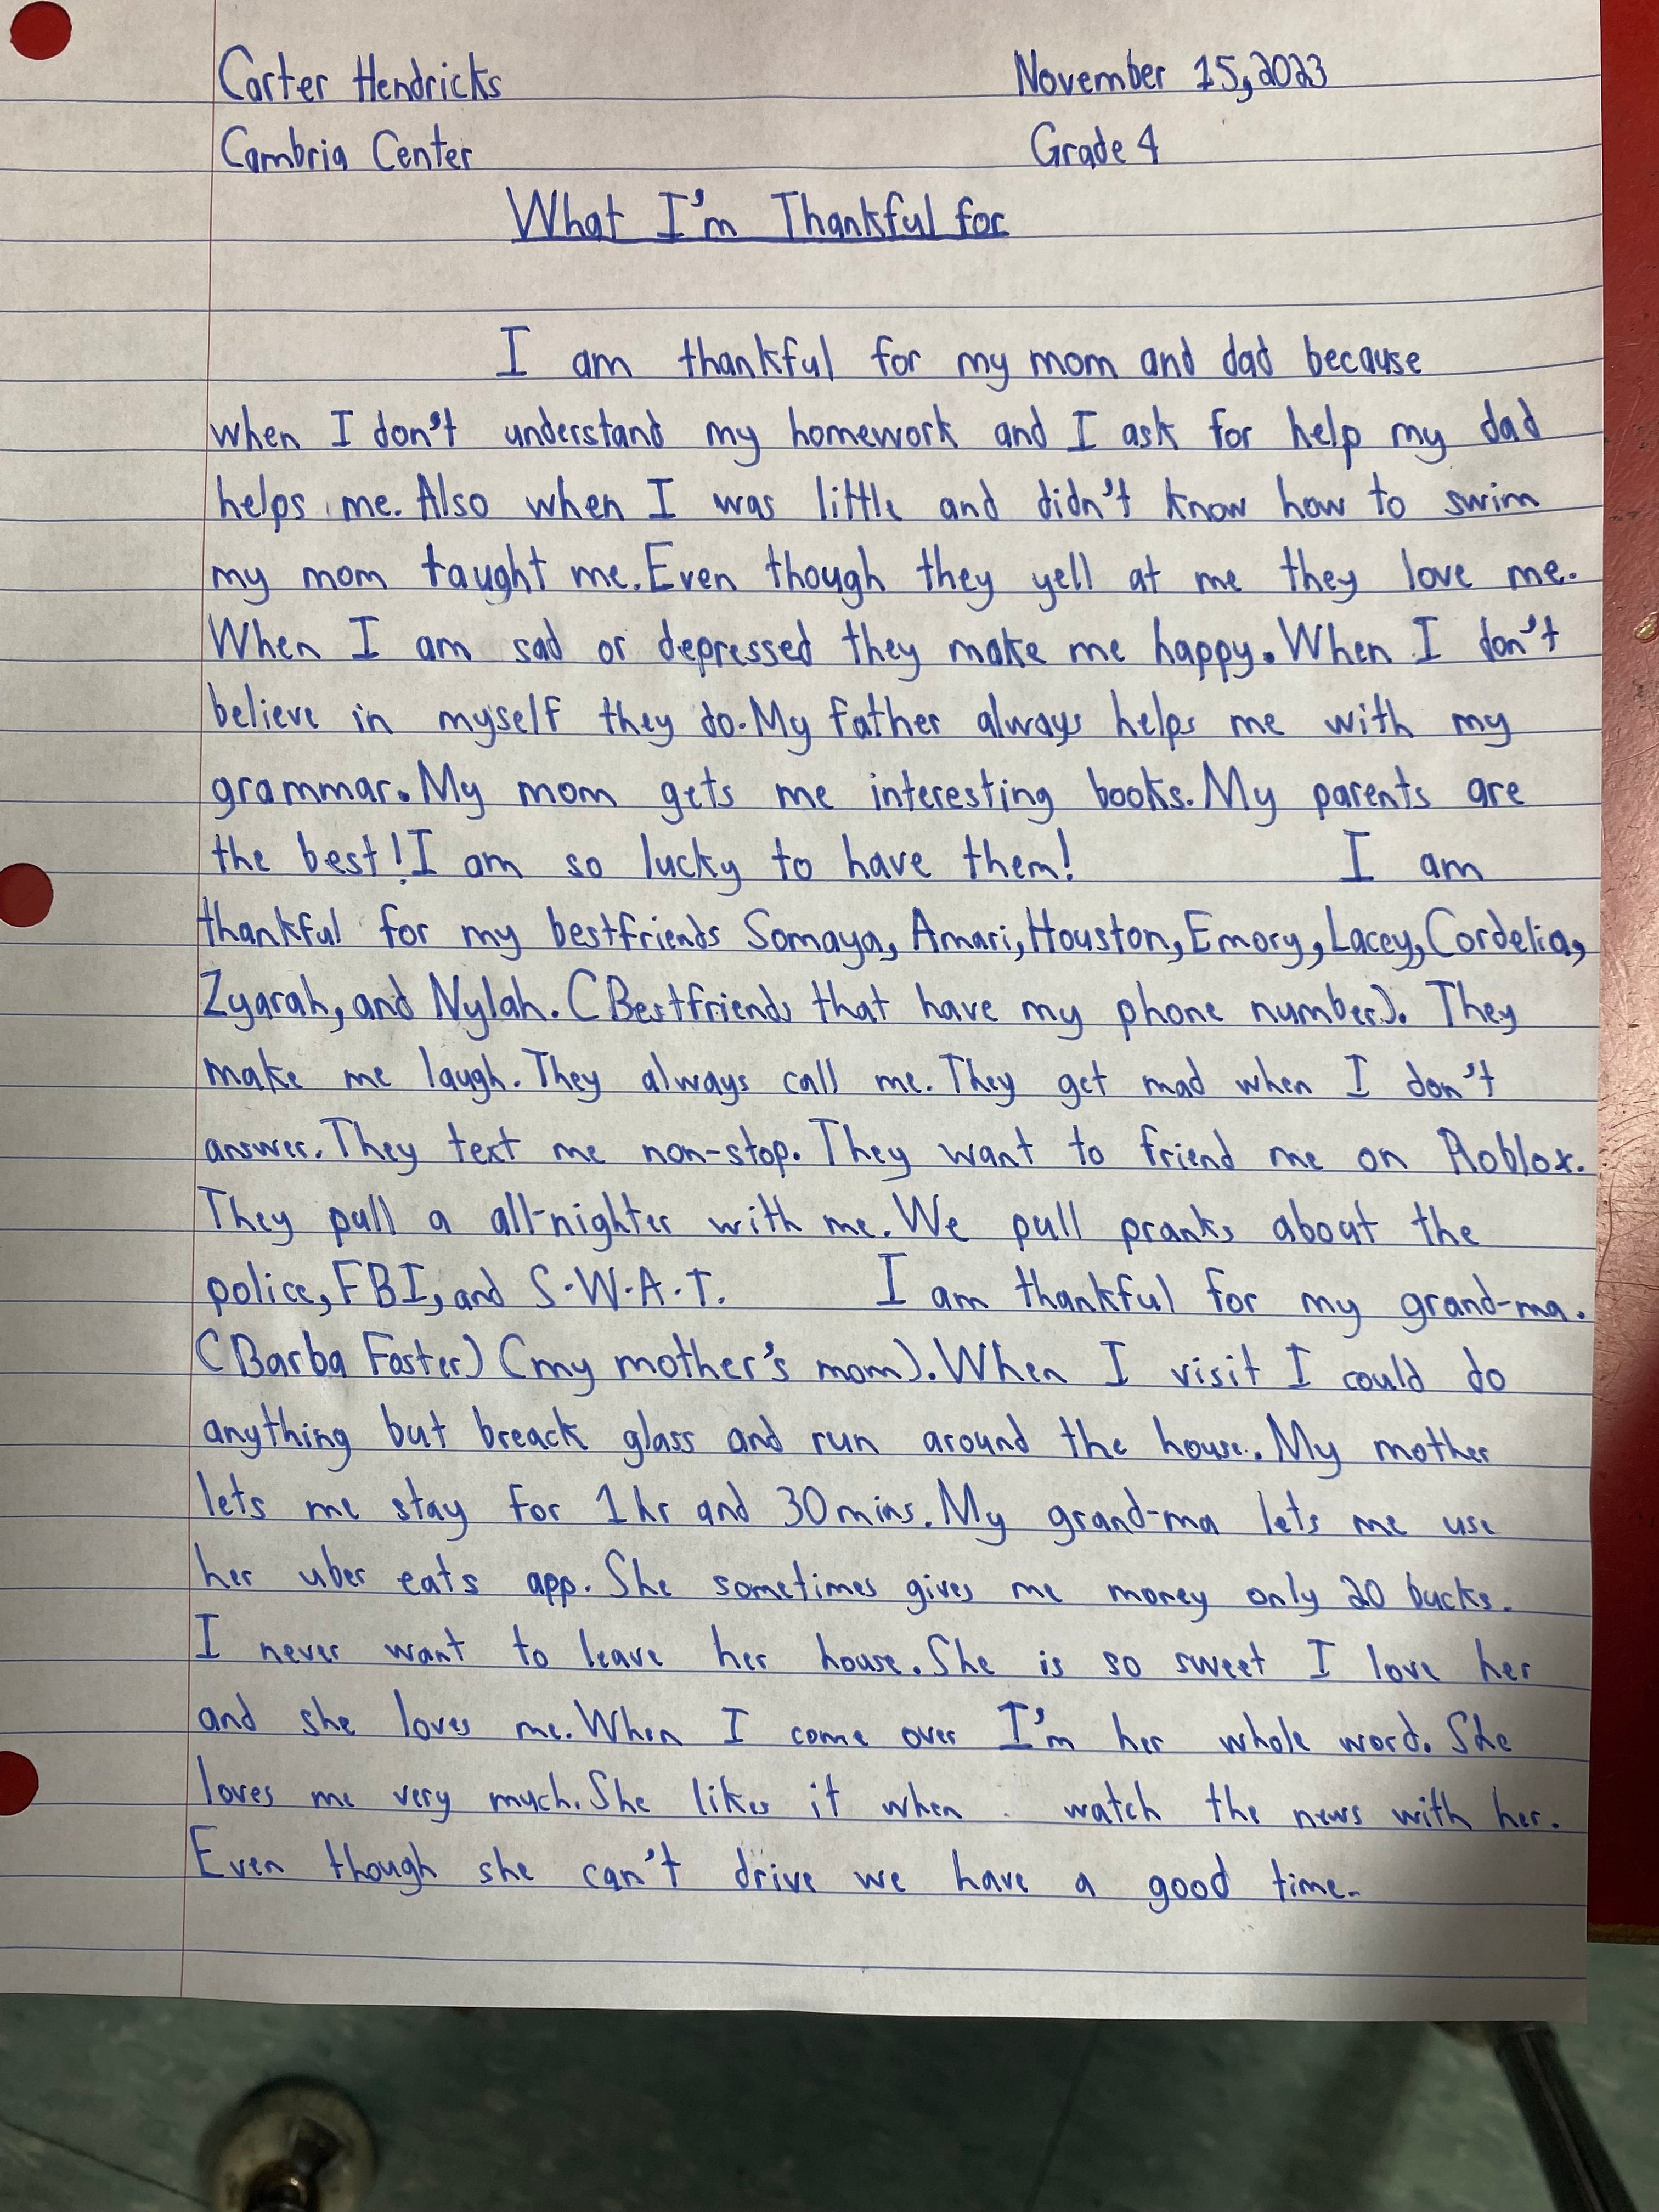 Carter Hendricks November 15, 2023
Cambria Center Grade 4
What I'm Thankful for
I am thankful for my mom and dad because
when I don't understand my homework and I ask for help my dad
helps me. Also when I was little and didn't know how to swim
my mom taught me. Even though they yell at me they love me.
When I am sad or depressed they make me happy. When I don't
believe in myself they do. My father always helps me with my
grammar. My mom gets me interesting books. My parents are
the best! I am so lucky to have them! I am
thankful for my bestfriends Somaya, Amari, Houston, Emory, Lacey, Cordelia,
Zyarah, and Nylah. (Bestfriends that have my phone number). They
make me laugh. They always call me. They get mad when I don't
answer. They text me non-stop. They want to friend me on Roblox.
They pull a all-nighter with me. We pull pranks about the
police, FBI, and S.W.A.T. I am thankful for my grand-ma.
(Barba Foster) (my mother's mom). When I visit I could do
anything but breack glass and run around the house. My mother
lets me stay for 1 hr and 30 mins. My grand-ma lets me use
her uber eats app. She sometimes gives me money only 20 bucks.
I never want to leave her house. She is so sweet I love her
and she loves me. When I come over I'm her whole word. She
loves me very much. She likes it when watch the news with her.
Even though she can't drive we have a good time.